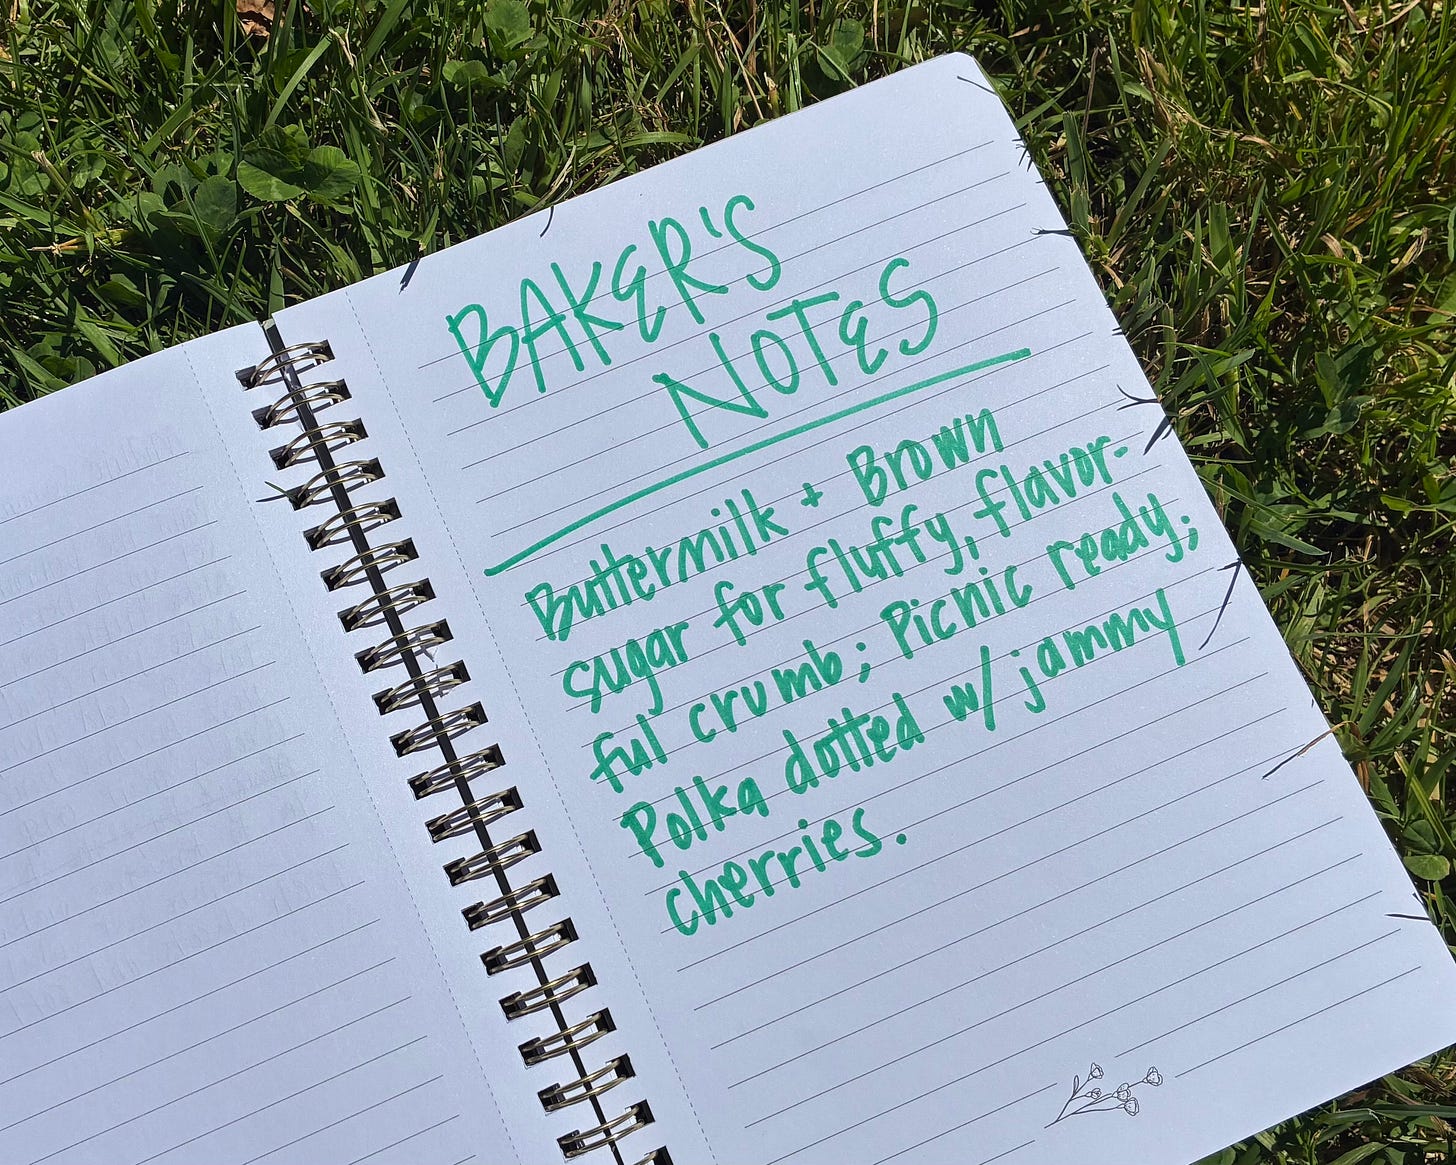 BAKER'S
NOTES
Buttermilk + Brown
sugar for fluffy, flavor-
ful crumb; Picnic ready;
Polka dotted w/ jammy
cherries.